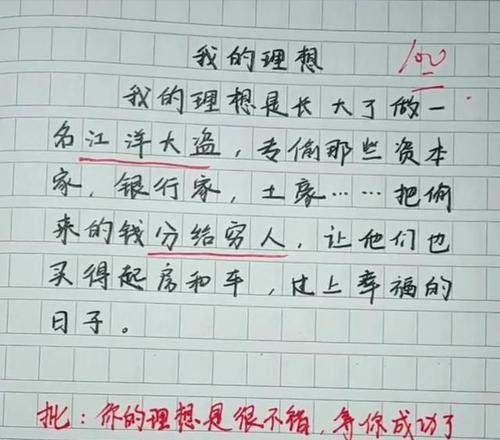 我的理想
100
我的理想是长大了做一
名江洋大盗，专偷那些资本
家，银行家，土豪……把偷
来的钱分给穷人，让他们也
买得起房和车，过上幸福的
日子。
批：你的理想是很不错，等你成功了